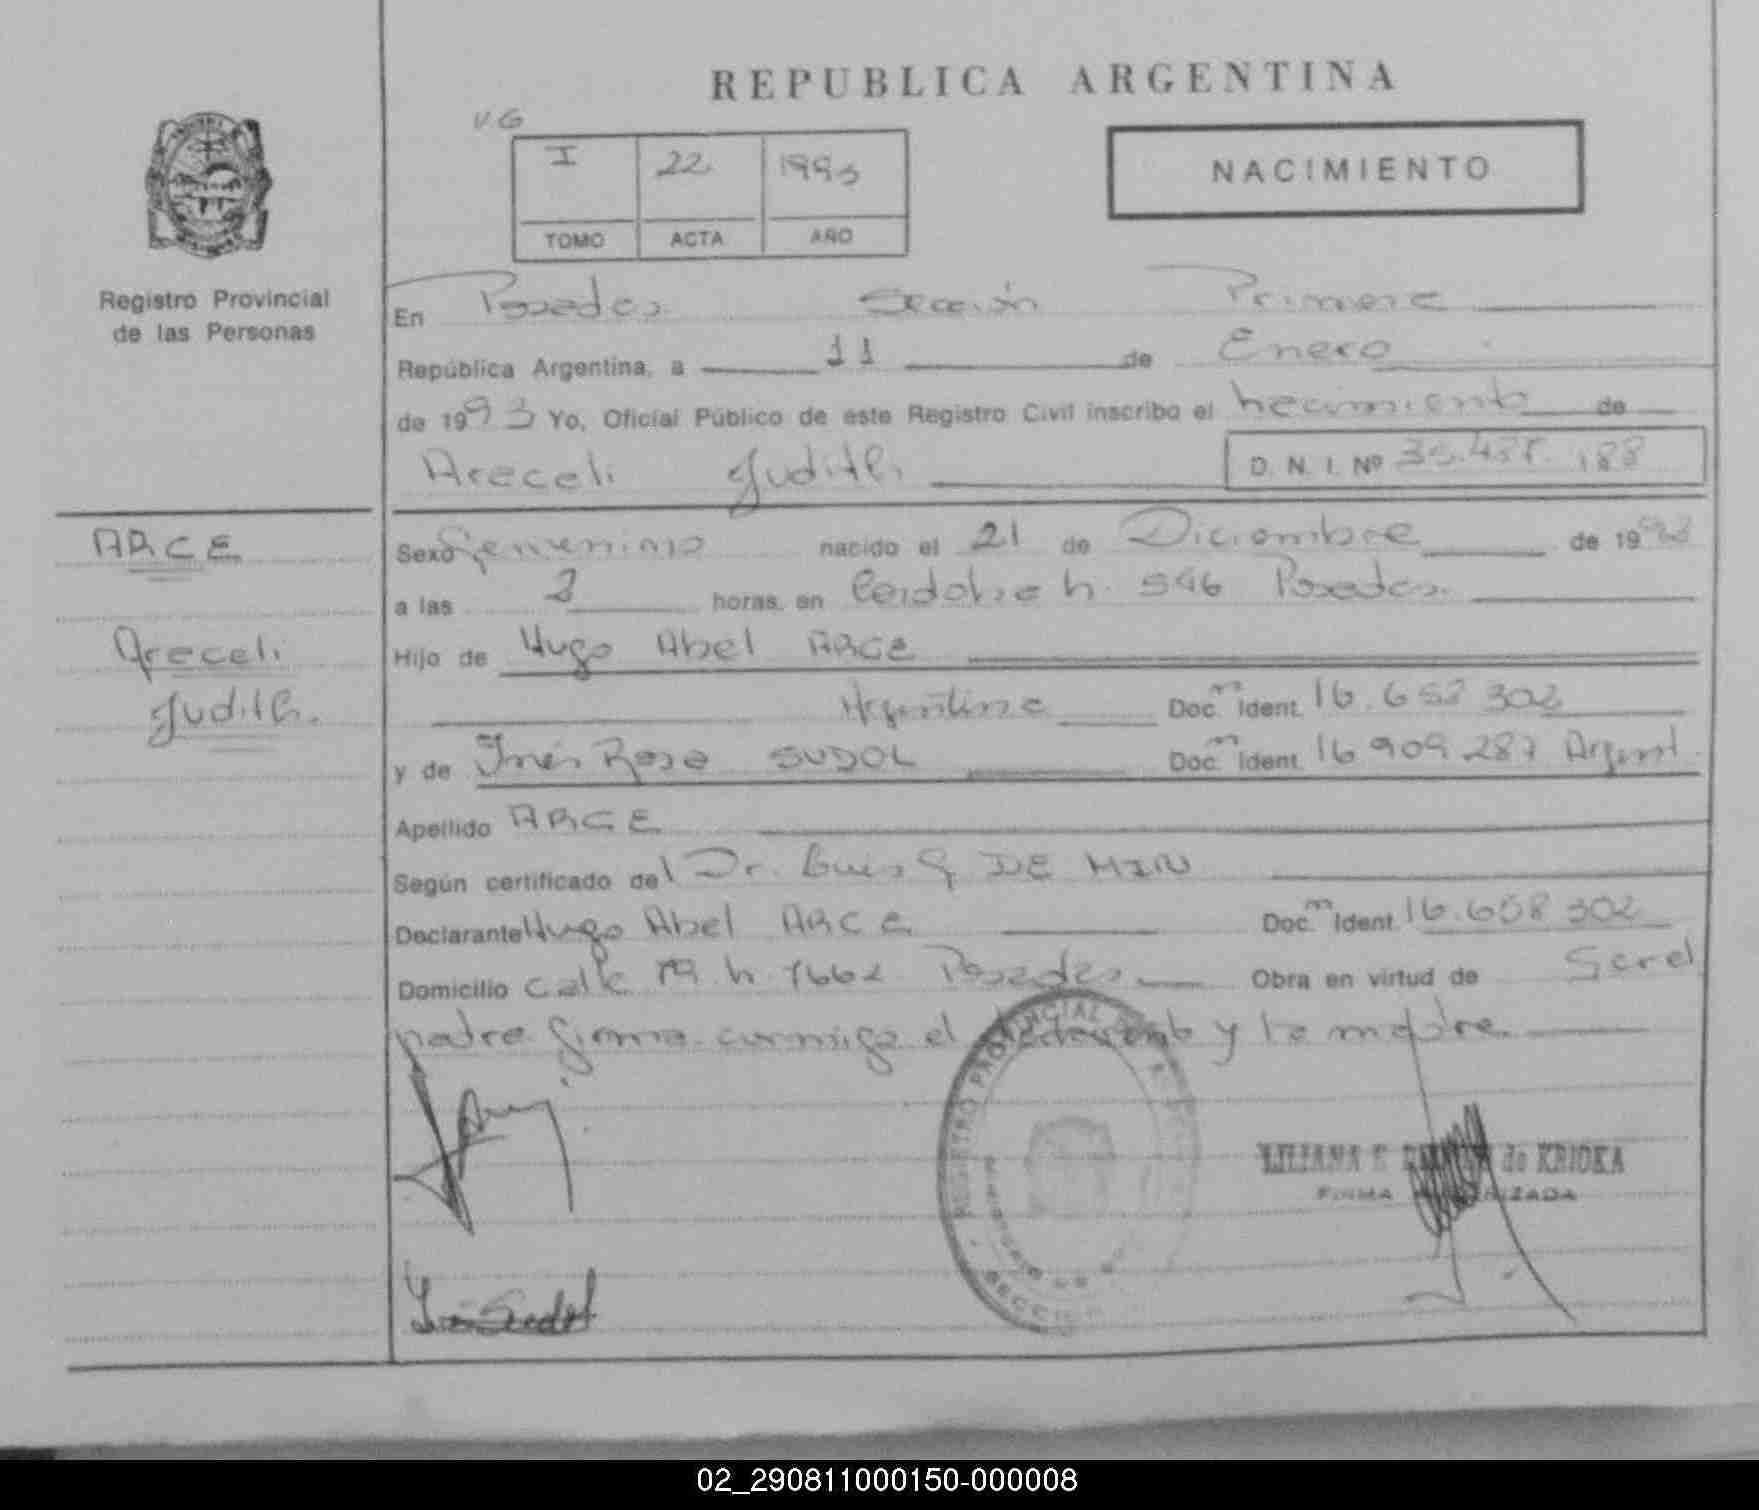 REPUBLICA ARGENTINA
V.G
I 22 1993
TOMO ACTA AÑO
NACIMIENTO
Registro Provincial
de las Personas
En Posadas Sección Primera
República Argentina, a 11 de Enero
de 1993 Yo, Oficial Público de este Registro Civil inscribo el nacimiento de
Araceli Judith
D. N. I. Nº 188
ARCE
Araceli
Judith.
Sexo Femenino nacido el 21 de Diciembre de 19
a las horas, en Córdoba n. 546 Posadas.
Hijo de Hugo Abel ARCE
Argentino Doc. Ident. 16.658 302
y de Inés Rosa SUDOL Doc. Ident. 16 909 287 Argent.
Apellido ARCE
Según certificado del Dr. Luis G. DE MIN
Declarante Hugo Abel ARCE Doc. Ident. 16.658 302
Domicilio calle n. 1662 Posadas Obra en virtud de Ser el
padre firma conmigo el declarante y la madre.
REGISTRO PROVINCIAL DE
SECCI
LILIANA E de KRIOKA
FIRMA AUTORIZADA
Inés Sudol
02_290811000150-000008